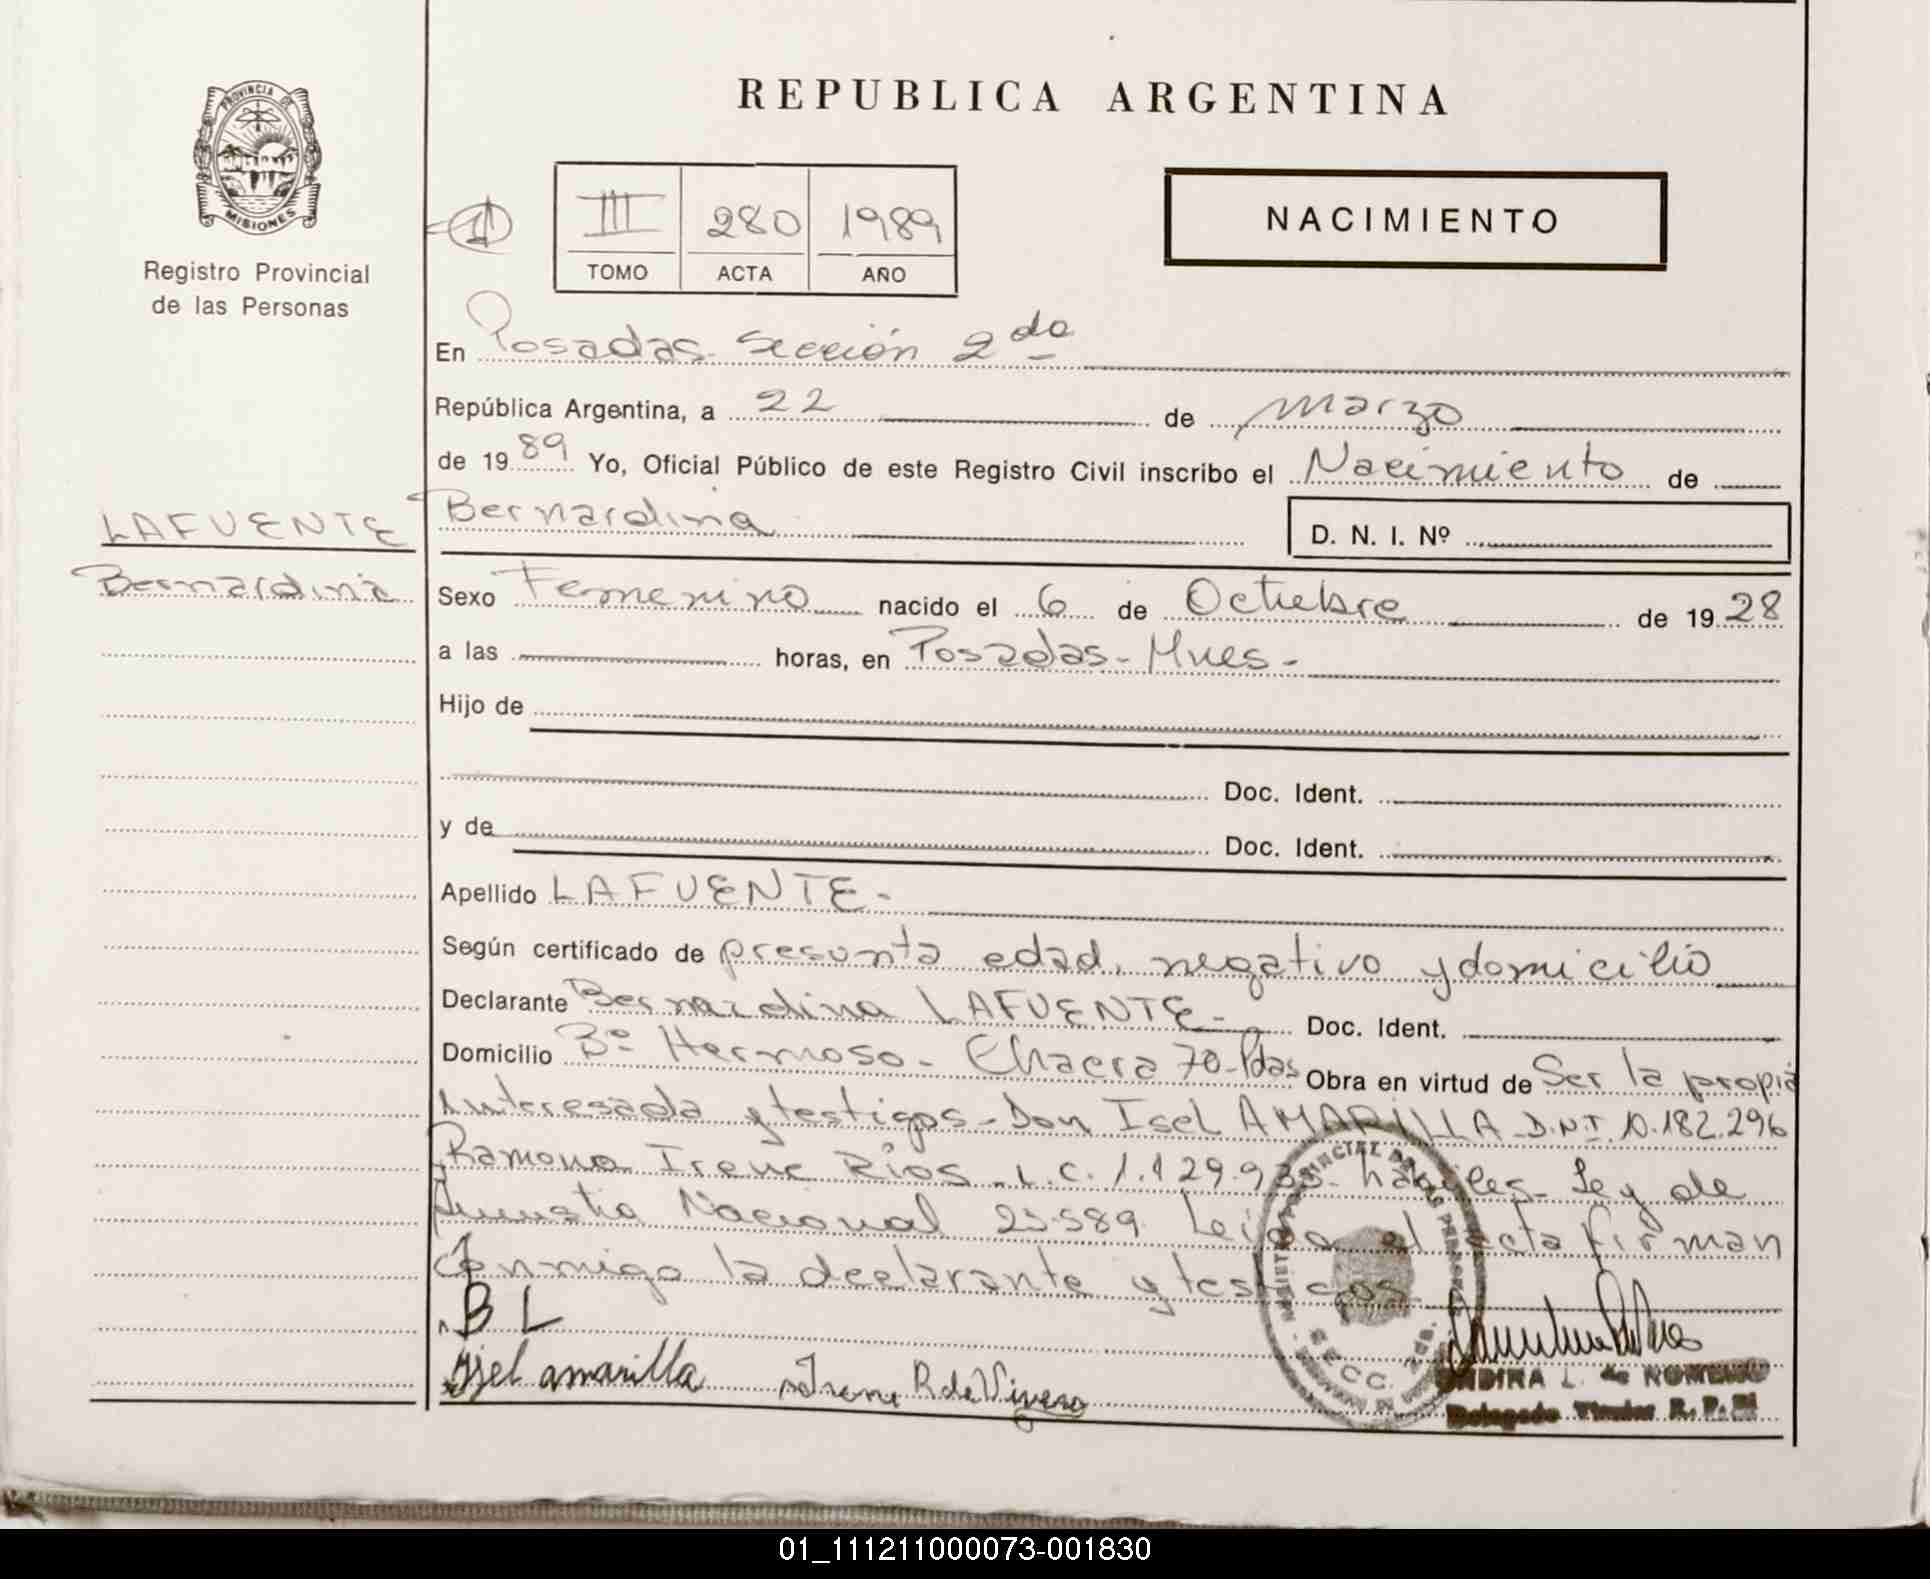 REPUBLICA ARGENTINA
PROVINCIA DE
MISIONES
Registro Provincial
de las Personas
III 280 1989
TOMO ACTA AÑO
NACIMIENTO
En Posadas Sección 2da
República Argentina, a 22 de marzo
de 1989 Yo, Oficial Público de este Registro Civil inscribo el Nacimiento de
Bernardina
D. N. I. Nº
LAFUENTE
Bernardina
Sexo Femenino nacido el 6 de Octubre de 1928
a las horas, en Posadas - Mnes.-
Hijo de
Doc. Ident.
y de Doc. Ident.
Apellido LAFUENTE.-
Según certificado de presunta edad, negativo y domicilio
Declarante Bernardina LAFUENTE.- Doc. Ident.
Domicilio Bº Hermoso - Chacra 70-Pdas Obra en virtud de Ser la propia
interesada y testigos - Don Isel AMARILLA D.N.I. 10.182.296
Ramona Irene Rios L.C. 1.129.935- hábiles- Ley de
Amnistia Nacional 23.589. Leida el acta firman
Conmigo la declarante y testigos
B L
Isel amarilla Irene R de Vivero
SECC. 2da.
L. de ROMERO
Delegado Titular R. P.
01_111211000073-001830